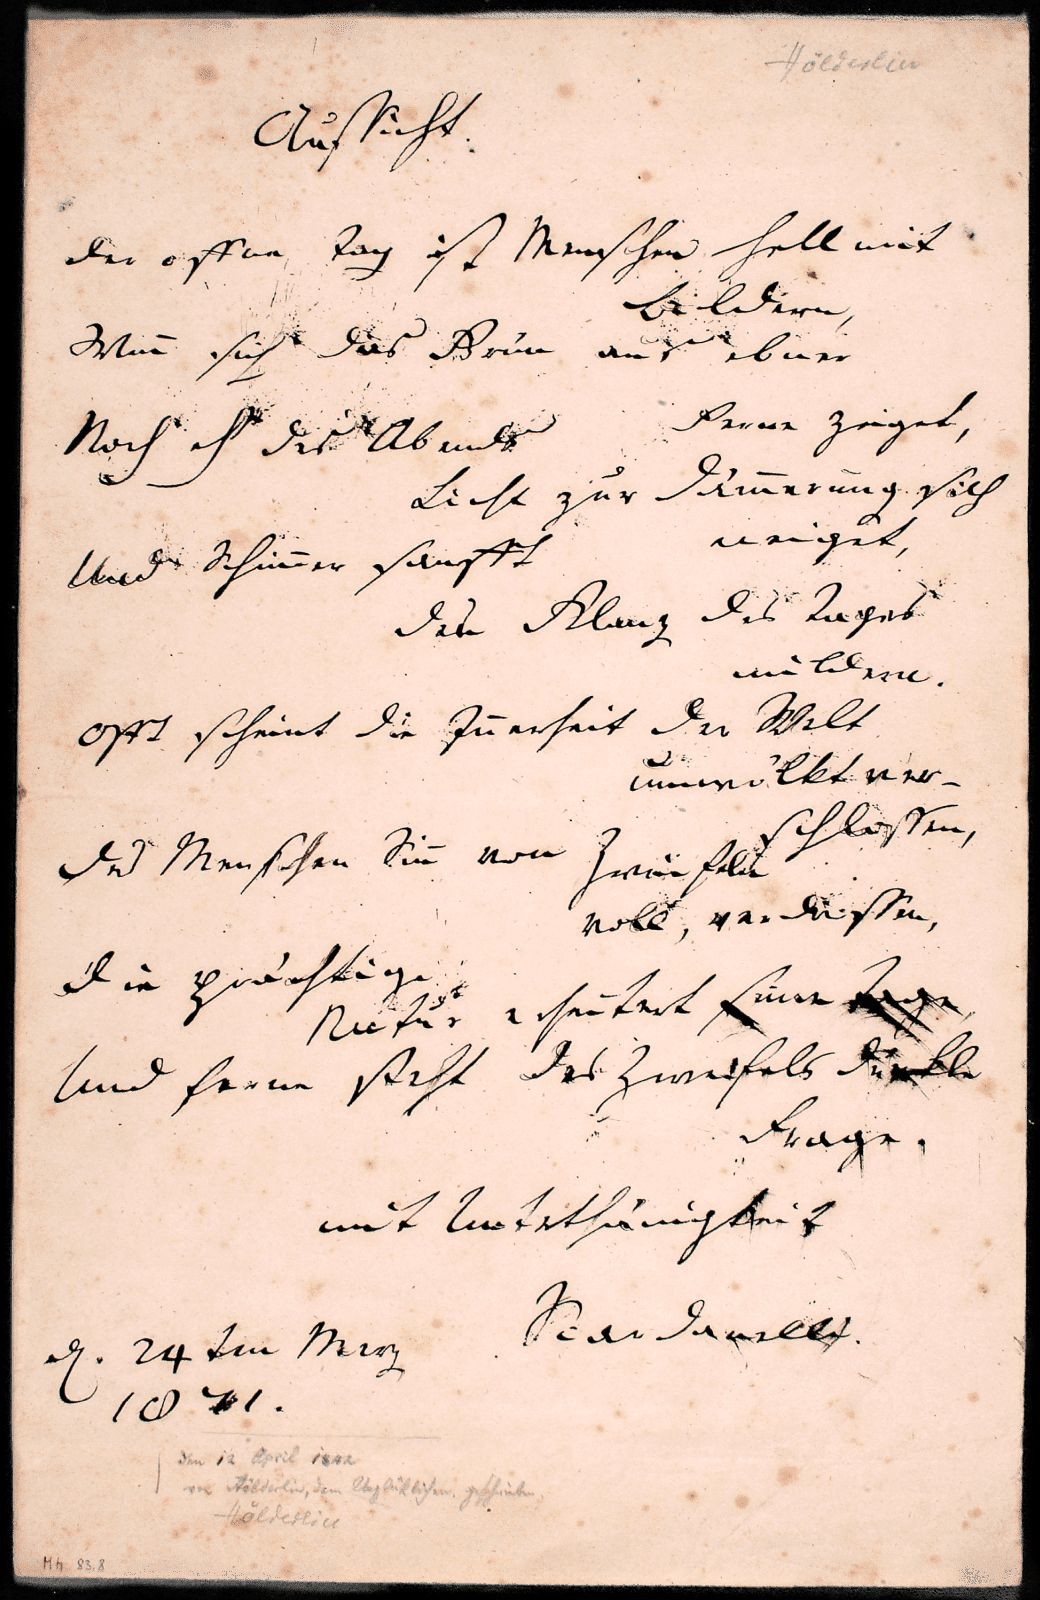 Hölderlin
Aussicht.
Der offne Tag ist Menschen hell mit
Bildern,
Wenn sich das Grün aus ebner
Ferne zeiget,
Noch eh' des Abends
Licht zur Dämmerung sich
neiget,
Und Schimmer sanfft
den Klang des Tages
mildern.
Offt scheint die Innerheit der Welt
umwölkt ver-
schlossen,
Des Menschen Sinn von Zweifeln
voll, verdrossen,
Die prächtige
Natur erheitert seine Tage,
Und ferne steht des Zweifels dunkle
Frage.
mit Unterthänigkeit
Scardanelli.
d. 24ten Merz
1871.
den 12 April 1842
von Hölderlin, dem Unglüklichen geschrieben.
Hölderlin
Hh 83.8